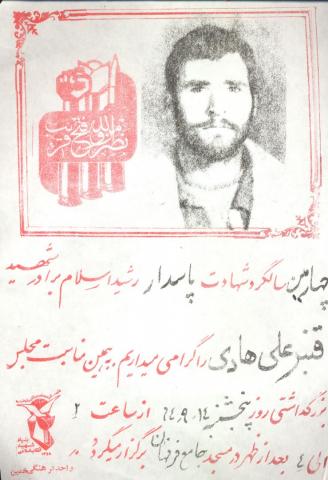 نصر من الله و فتح قریب
چهارمین سالگرد شهادت پاسدار رشید اسلام برادر شهید
قنبر علی هادی را گرامی میداریم بهمین مناسبت مجلس
بزرگداشتی روز پنجشنبه ۶۴٫۹٫۱۴ از ساعت ۲
الی ۴ بعد از ظهر در مسجد جامع برگزار میگردد
بنیاد شهید
واحد فرهنگی خمین